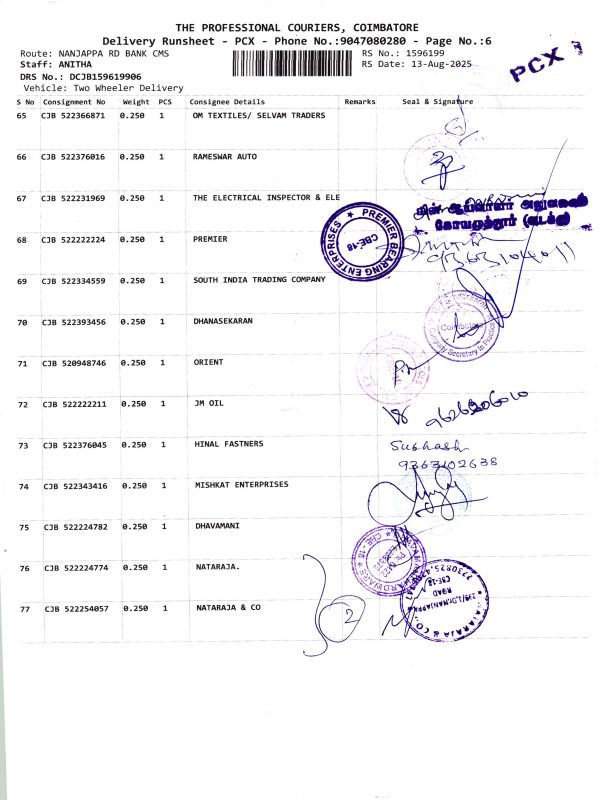 THE PROFESSIONAL COURIERS, COIMBATORE
Delivery Runsheet - PCX - Phone No.:9047080280 - Page No.:6
Route: NANJAPPA RD BANK CMS
RS No.: 1596199
Staff: ANITHA
RS Date: 13-Aug-2025
DRS No.: DCJB159619906
Vehicle: Two Wheeler Delivery
PCX
S No Consignment No Weight PCS Consignee Details Remarks Seal & Signature
65 CJB 522366871 0.250 1 OM TEXTILES/ SELVAM TRADERS
66 CJB 522376016 0.250 1 RAMESWAR AUTO
67 CJB 522231969 0.250 1 THE ELECTRICAL INSPECTOR & ELE
மின் ஆய்வாளர் அலுவலகம்
கோயமுத்தூர் (வடக்கு)
68 CJB 522222224 0.250 1 PREMIER
PREMIER BEARING ENTERPRISES
CBE-18
69 CJB 522334559 0.250 1 SOUTH INDIA TRADING COMPANY
70 CJB 522393456 0.250 1 DHANASEKARAN
Coimbatore
Company Secretary In Practice
71 CJB 520948746 0.250 1 ORIENT
72 CJB 522222211 0.250 1 JM OIL
73 CJB 522376045 0.250 1 HINAL FASTNERS
Subhash
9363102638
74 CJB 522343416 0.250 1 MISHKAT ENTERPRISES
75 CJB 522224782 0.250 1 DHAVAMANI
HARDWARE
CBE-18
76 CJB 522224774 0.250 1 NATARAJA.
77 CJB 522254057 0.250 1 NATARAJA & CO
2
NATARAJA & CO.
ROAD
CBE-18